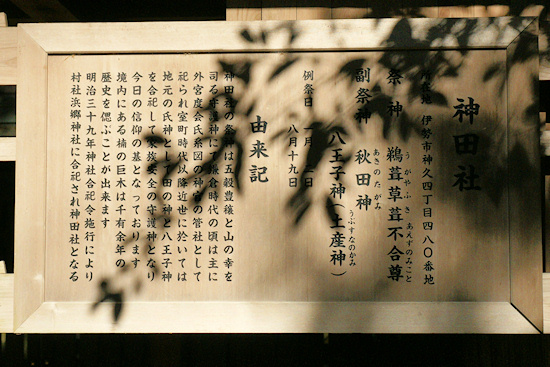 神田社
所在地 伊勢市神久四丁目四八〇番地
祭神 鵜葺草葺不合尊
うがやふきあえずのみこと
副祭神 秋田神
あきのたがみ
八王子神(土産神)
うぶすなのかみ
例祭日 一月 日
八月十九日
由来記
神田社の祭神は五穀豊穣と山の幸を
司る守護神にて鎌倉時代の頃は主に
外宮度会氏系図の神官の管社として
祀られ室町時代以降近世に於いては
地元の氏神として田の神と八王子神
を合祀して家族安全の守護神となり
今日の信仰の基となっております
境内にある楠の巨木は千有余年の
歴史を偲ぶことが出来ます
明治三十九年神社合祀令施行により
村社浜郷神社に合祀され神田社となる